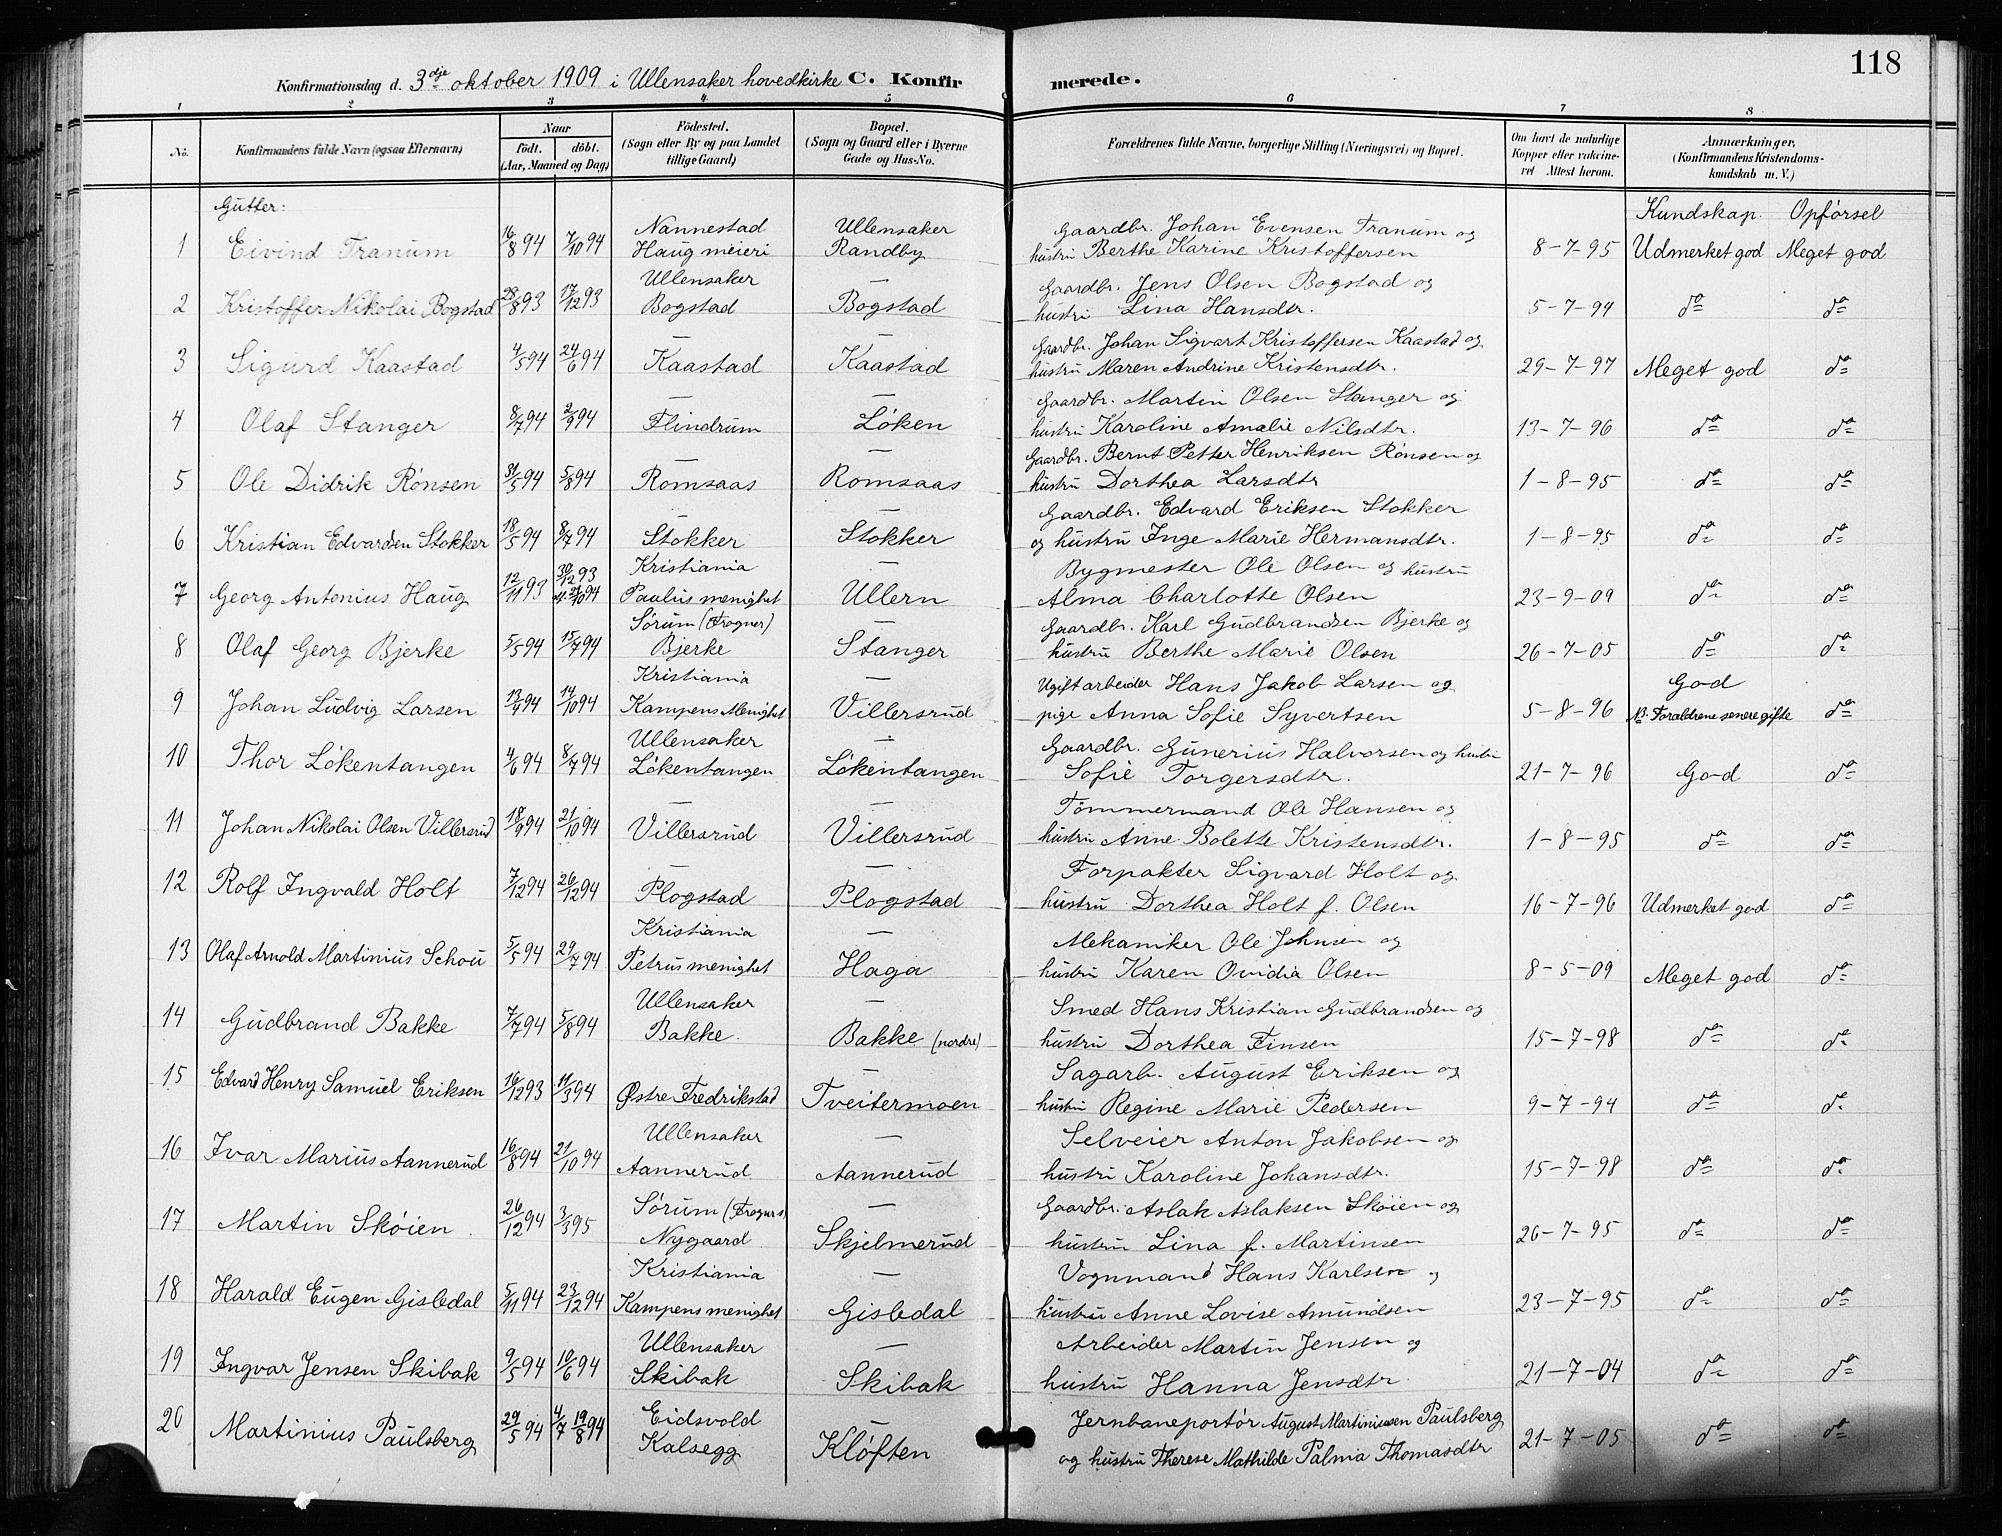 118
Konfirmationsdag d. 3dje oktober 1909 i Ullensaker hovedkirke C. Konfirmerede.
1 2 3 4 5 6 7 8
No. Konfirmandens fulde Navn (ogsaa Efternavn) Naar födt. döbt. (Aar, Maaned og Dag) Födested. (Sogn eller By og paa Landet tillige Gaard) Bopæl. (Sogn og Gaard eller i Byerne Gade og Hus-No. Forældrenes fulde Navne, borgerlige Stilling (Næringsvei) og Bopæl. Om havt de naturlige Kopper eller vaccineret Attest herom. Anmærkninger. (Konfirmandens Kristendomskundskab m. V.)
Gutter: Kundskap. Opførsel
Nannestad Ullensaker Gaardbr. Johan Evensen Tranum og
1 Eivind Tranum 16/8 94 7/10 94 Haug meieri Randby hustru Berthe Karine Kristoffersen 8-7-95 Udmerket god Meget god
Ullensaker — Gaardbr. Jens Olsen Bogstad og
2 Kristoffer Nikolai Bogstad 28/8 93 17/12 93 Bogstad Bogstad hustru Lina Hansdtr. 5-7-94 do do
— — Gaardbr. Johan Sigvart Kristoffersen Kaastad og
3 Sigurd Kaastad 4/5 94 24/6 94 Kaastad Kaastad hustru Maren Andrine Kristensdtr. 29-7-97 Meget god do
— — Gaardbr. Martin Olsen Stanger og
4 Olaf Stanger 8/7 94 2/9 94 Flindrum Løken hustru Karoline Amalie Nilsdtr. 13-7-96 do do
— — Gaardbr. Bernt Petter Henriksen Rønsen og
5 Ole Didrik Rønsen 31/5 94 5/8 94 Romsaas Romsaas hustru Dorthea Larsdtr 1-8-95 do do
— — Gaardbr. Edvard Eriksen Stokker
6 Kristian Edvardsen Stokker 18/5 94 8/7 94 Stokker Stokker og hustru Inge Marie Hermansdtr. 1-8-95 do do
Kristiania — Bygmester Ole Olsen og hustru
7 Georg Antonius Haug 12/11 93 30/12 93 /10 94 Paulus menighet Ullern Alma Charlotte Olsen 23-9-09 do do
Sørum (Frogner) — Gaardbr. Karl Gudbrandsen Bjerke og
8 Olaf Georg Bjerke 5/5 94 15/7 94 Bjerke Stanger hustru Berthe Marie Olsen 26-7-05 do do
Kristiania — Ugift arbeider Hans Jakob Larsen og God
9 Johan Ludvig Larsen 13/4 94 14/10 94 Kampens Menighet Villersrud pige Anna Sofie Syvertsen 5-8-96 NB. Forældrene senere gifte do
Ullensaker — Gaardbr. Gunerius Halvorsen og hustru
10 Thor Løkentangen 4/6 94 8/7 94 Løkentangen Løkentangen Sofie Torgersdtr. 21-7-96 God do
— — Tømmermand Ole Hansen og
11 Johan Nikolai Olsen Villersrud 18/9 94 21/10 94 Villersrud Villersrud hustru Anne Bolette Kristensdtr. 1-8-95 do do
— — Forpakter Sigvard Holt og
12 Rolf Ingvald Holt 7/12 94 26/12 94 Plogstad Plogstad hustru Dorthea Holt f. Olsen 16-7-96 Udmerket god do
Kristiania — Mekaniker Ole Johnsen og
13 Olaf Arnold Martinius Schou 5/5 94 29/7 94 Petrus menighet Haga hustru Karen Ovidia Olsen 8-5-09 Meget god do
Ullensaker — Smed Hans Kristian Gudbrandsen og
14 Gudbrand Bakke 7/7 94 5/8 94 Bakke. Bakke (nordre) hustru Dorthea Finsen 15-7-98 do do
— Sagarb. August Eriksen og
15 Edvard Henry Samuel Eriksen 16/12 93 11/3 94 Østre Fredrikstad Tveitermoen hustru Regine Marie Pedersen 9-7-94 do do
Ullensaker — Selveier Anton Jakobsen og
16 Ivar Marius Aannerud 16/8 94 21/10 94 Aannerud Aannerud hustru Karoline Johansdtr. 15-7-98 do do
Sørum (Frogner) — Gaardbr. Aslak Aslaksen Skøien og
17 Martin Skøien 26/12 94 3/3 95 Nygaard Skjelmerud hustru Lina f. Martinsen 26-7-95 do do
Kristiania — Vognmand Hans Karlsen og
18 Harald Eugen Gisledal 5/11 94 23/12 94 Kampens menighet Gisledal hustru Anne Lovise Amundsen 23-7-95 do do
Ullensaker — Arbeider Martin Jensen og
19 Ingvar Jensen Skibak 9/5 94 10/6 94 Skibak Skibak hustru Hanna Jensdtr. 21-7-04 do do
Eidsvold Jernbaneportør August Martiniusen Paulsberg
20 Martinius Paulsberg 29/5 94 4/7 19/8 94 Kalsegg Kløften og hustru Therese Mathilde Palma Thomasdtr 21-7-05 do do